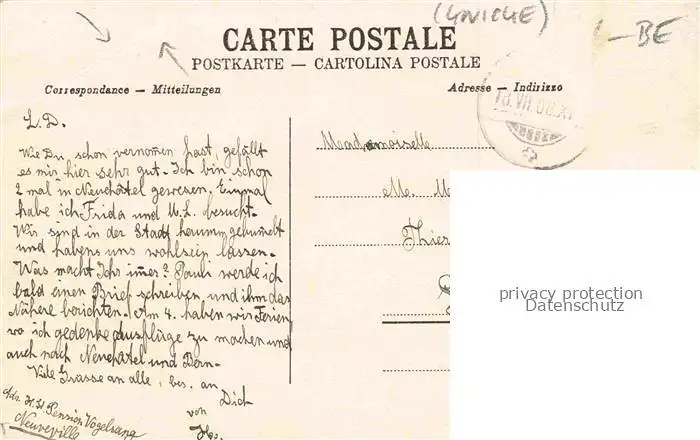 (GNIGE)
- BE
CARTE POSTALE
POSTKARTE — CARTOLINA POSTALE
Correspondance — Mitteilungen
Adresse — Indirizzo
L. D.
Wie Du schon vernomen hast, gefällt
es mir hier sehr gut. Ich bin schon
2 mal in Neuchâtel gewesen. Einmal
habe ich Frida und M. L. besucht.
Wir sind in der Stadt herumgebumelt
und habens uns wohlsein lassen.
Was macht Ihr imer? Pauli werde ich
bald einen Brief schreiben und ihm das
Nähere berichten. Am 4. haben wir Ferien
wo ich gedenke Ausflüge zu machen und
auch nach Neuchâtel und Bern.
Viele Grüsse an alle, bes. an
Dich
von
Adr. H. H. Pension Vogelsang
Neuveville
Mademoiselle
M. M
Thies
privacy protection
Datenschutz